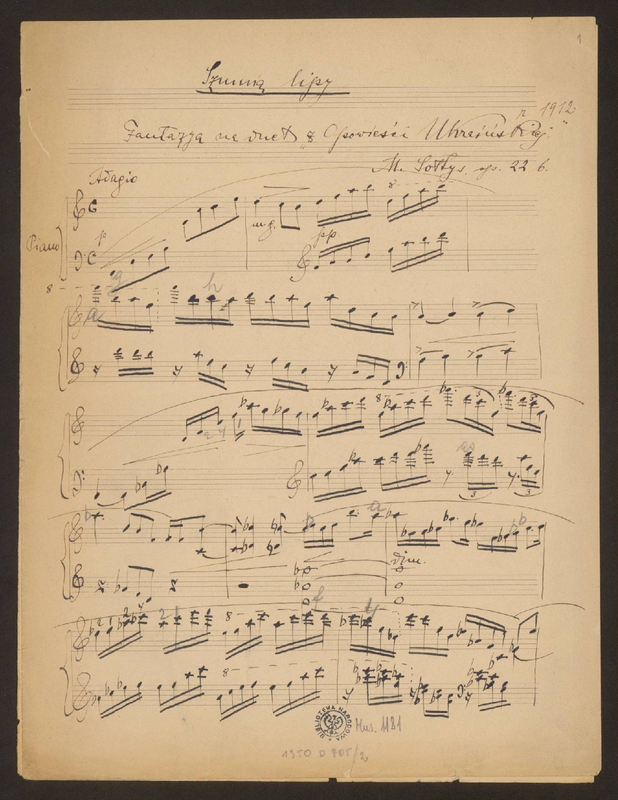 1
Szumią lipy
r. 1912
Fantazya na duet z "Opowieści Ukraińskiej"
M. Sołtys op. 22 b.
Adagio
Piano
p
m.g.
pp
8
8
g
h
a
8
3
3
3
dim.
8
8
BIBLIOTEKA NARODOWA
Mus. 1181
1950 D 705/2